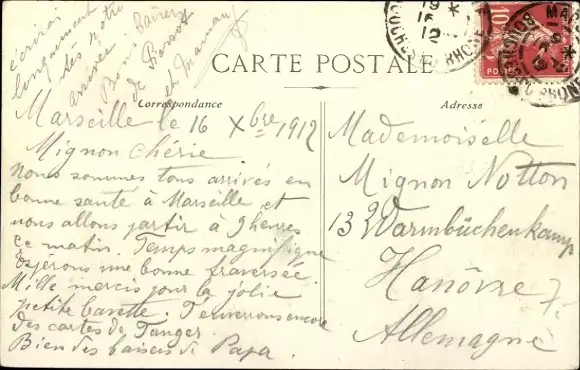 écrirai
longuement
dès notre
arrivée. Bons Baisers
de Pierrot
et Maman
CARTE POSTALE
Correspondance
Adresse
Marseille le 16 Xbre 1912
Mignon chérie.
Nous sommes tous arrivés en
bonne santé à Marseille et
nous allons partir à 9 heures
ce matin. Temps magnifique
Espérons une bonne traversée.
Mille mercis pour la jolie
petite barette. T'enverrons encore
des cartes de Tanger.
Bien des baisers de Papa.
Mademoiselle
Mignon Notton
13 Warmbüchenkamp
Hanôvre
Allemagne
10
19
16
12
BOUCHES DU RHONE